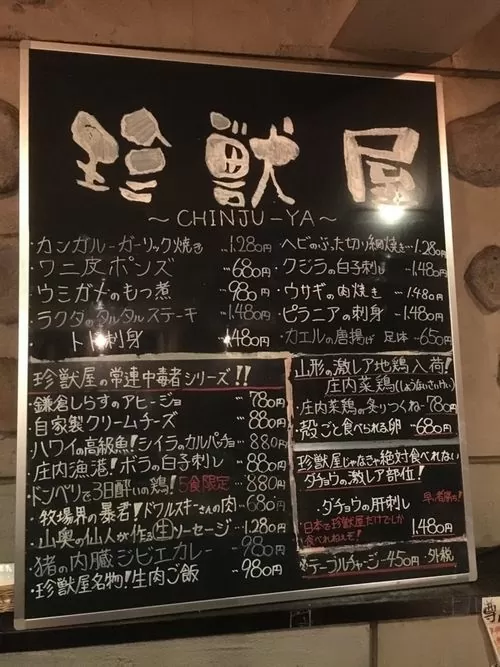 珍獣屋
～CHINJU-YA～
・カンガルーガーリック焼き … 1.280円
・ワニ皮ポンズ … 680円
・ウミガメのもつ煮 … 980円
・ラクダのタルタルステーキ … 1.480円
・トド刺身 … 1.480円
・ヘビのぶった切り網焼き … 1.280円
・クジラの白子刺し … 1.480円
・ウサギの肉焼き … 1.480円
・ピラニアの刺身 … 1.480円
・カエルの唐揚げ 足体 … 650円
珍獣屋の常連中毒者シリーズ!!
・鎌倉しらすのアヒージョ … 780円
・自家製クリームチーズ … 880円
・ハワイの高級魚!シイラのカルパッチョ … 880円
・庄内漁港!ボラの白子刺し … 880円
・ドンペリで3日酔いの鶏!5食限定 … 880円
・牧場界の暴君!ドウルスキーさんの肉 … 680円
・山奥の仙人が作る生ソーセージ … 1.280円
・猪の内臓ジビエカレー … 980円
・珍獣屋名物!生肉ご飯 … 980円
山形の激レア地鶏入荷!
庄内菜鶏(しょうないさいけい)
・庄内菜鶏の炙りつくね … 780円
・殻ごと食べられる卵 … 680円
珍獣屋じゃなきゃ絶対食べれない
ダチョウの激レア部位!
・ダチョウの肝刺し
早い者勝ち!
日本で珍獣屋だけでしか
食べれねえぞ!
1.480円
※テーブルチャージ … 450円・外税